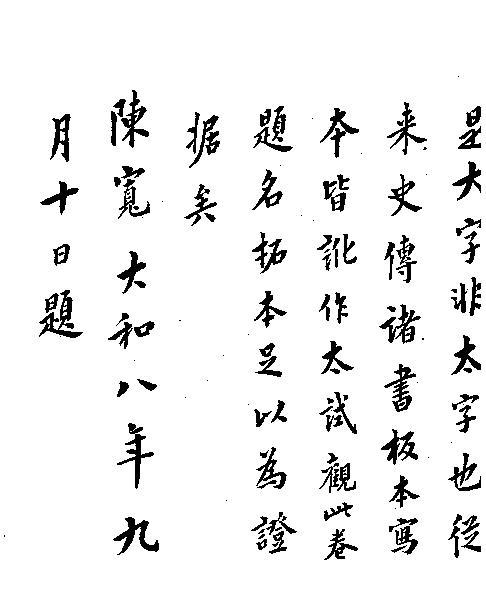 是大字非太字也從
来史傳諸書板本寫
本皆訛作太試觀此卷
題名拓本足以為證
据矣
陳寬大和八年九
月十日題